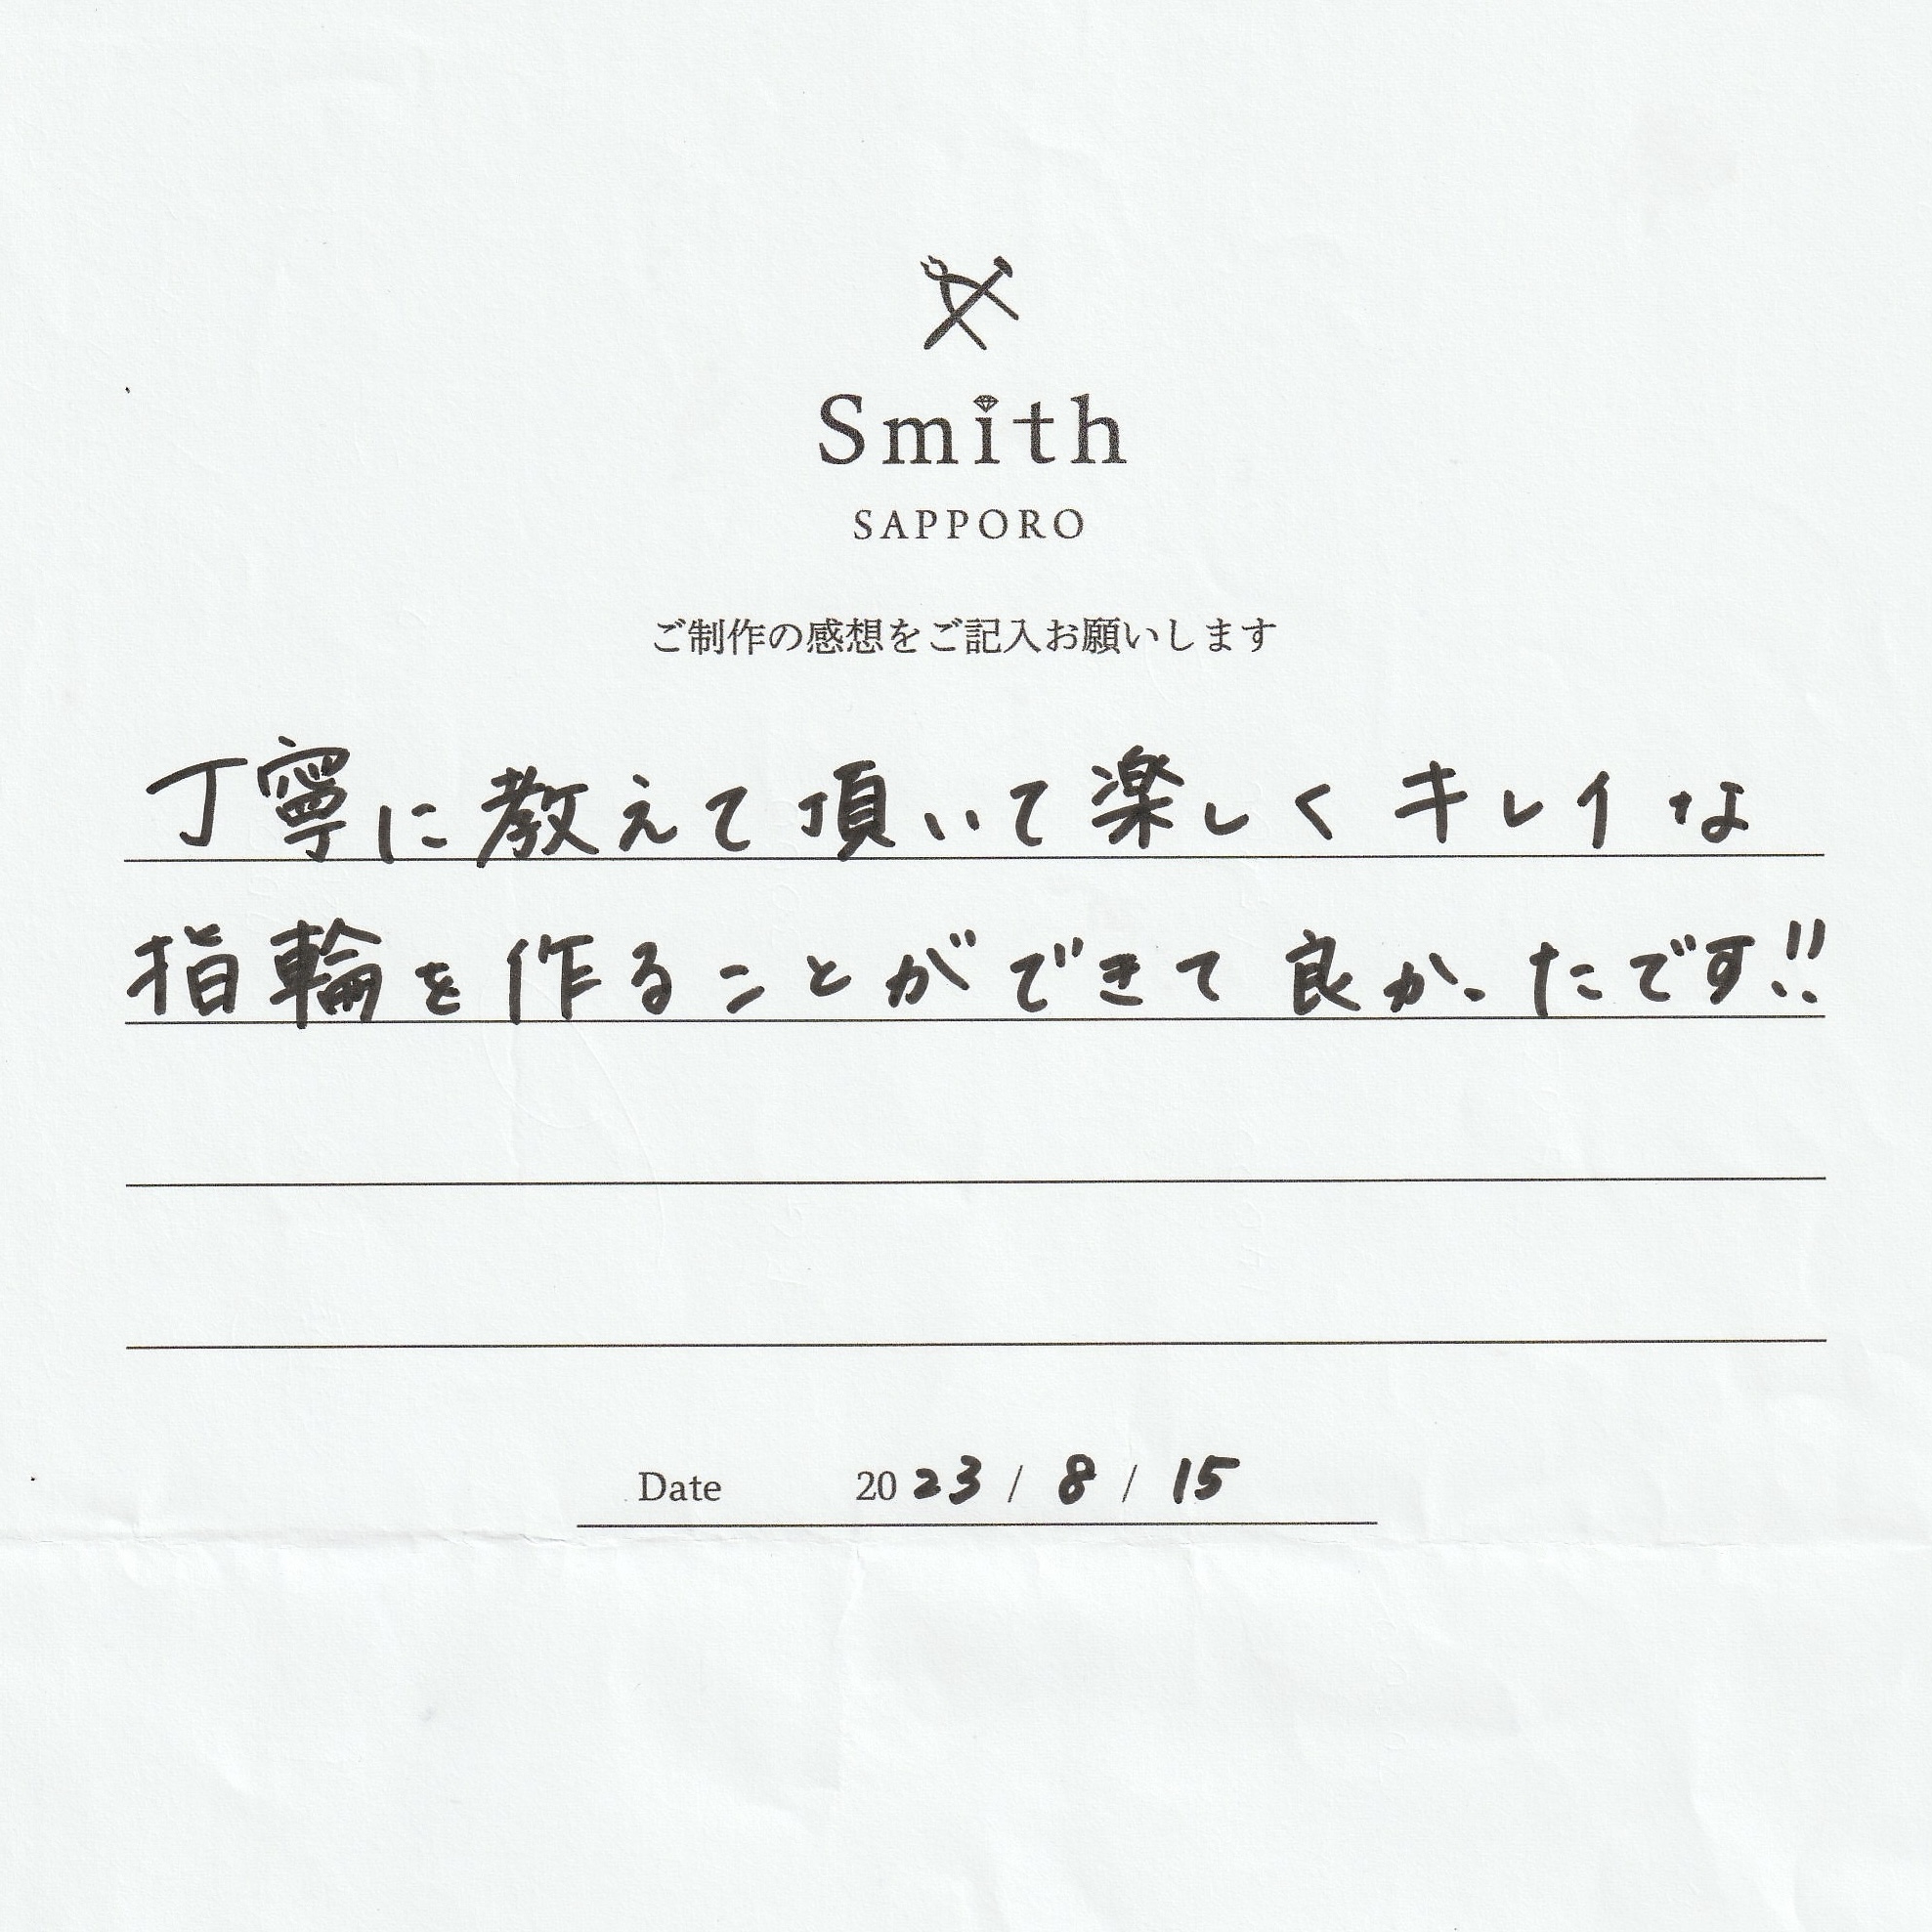 Smith
SAPPORO
ご制作の感想をご記入お願いします
丁寧に教えて頂いて楽しくキレイな
指輪を作ることができて良かったです!!
Date 2023 / 8 / 15